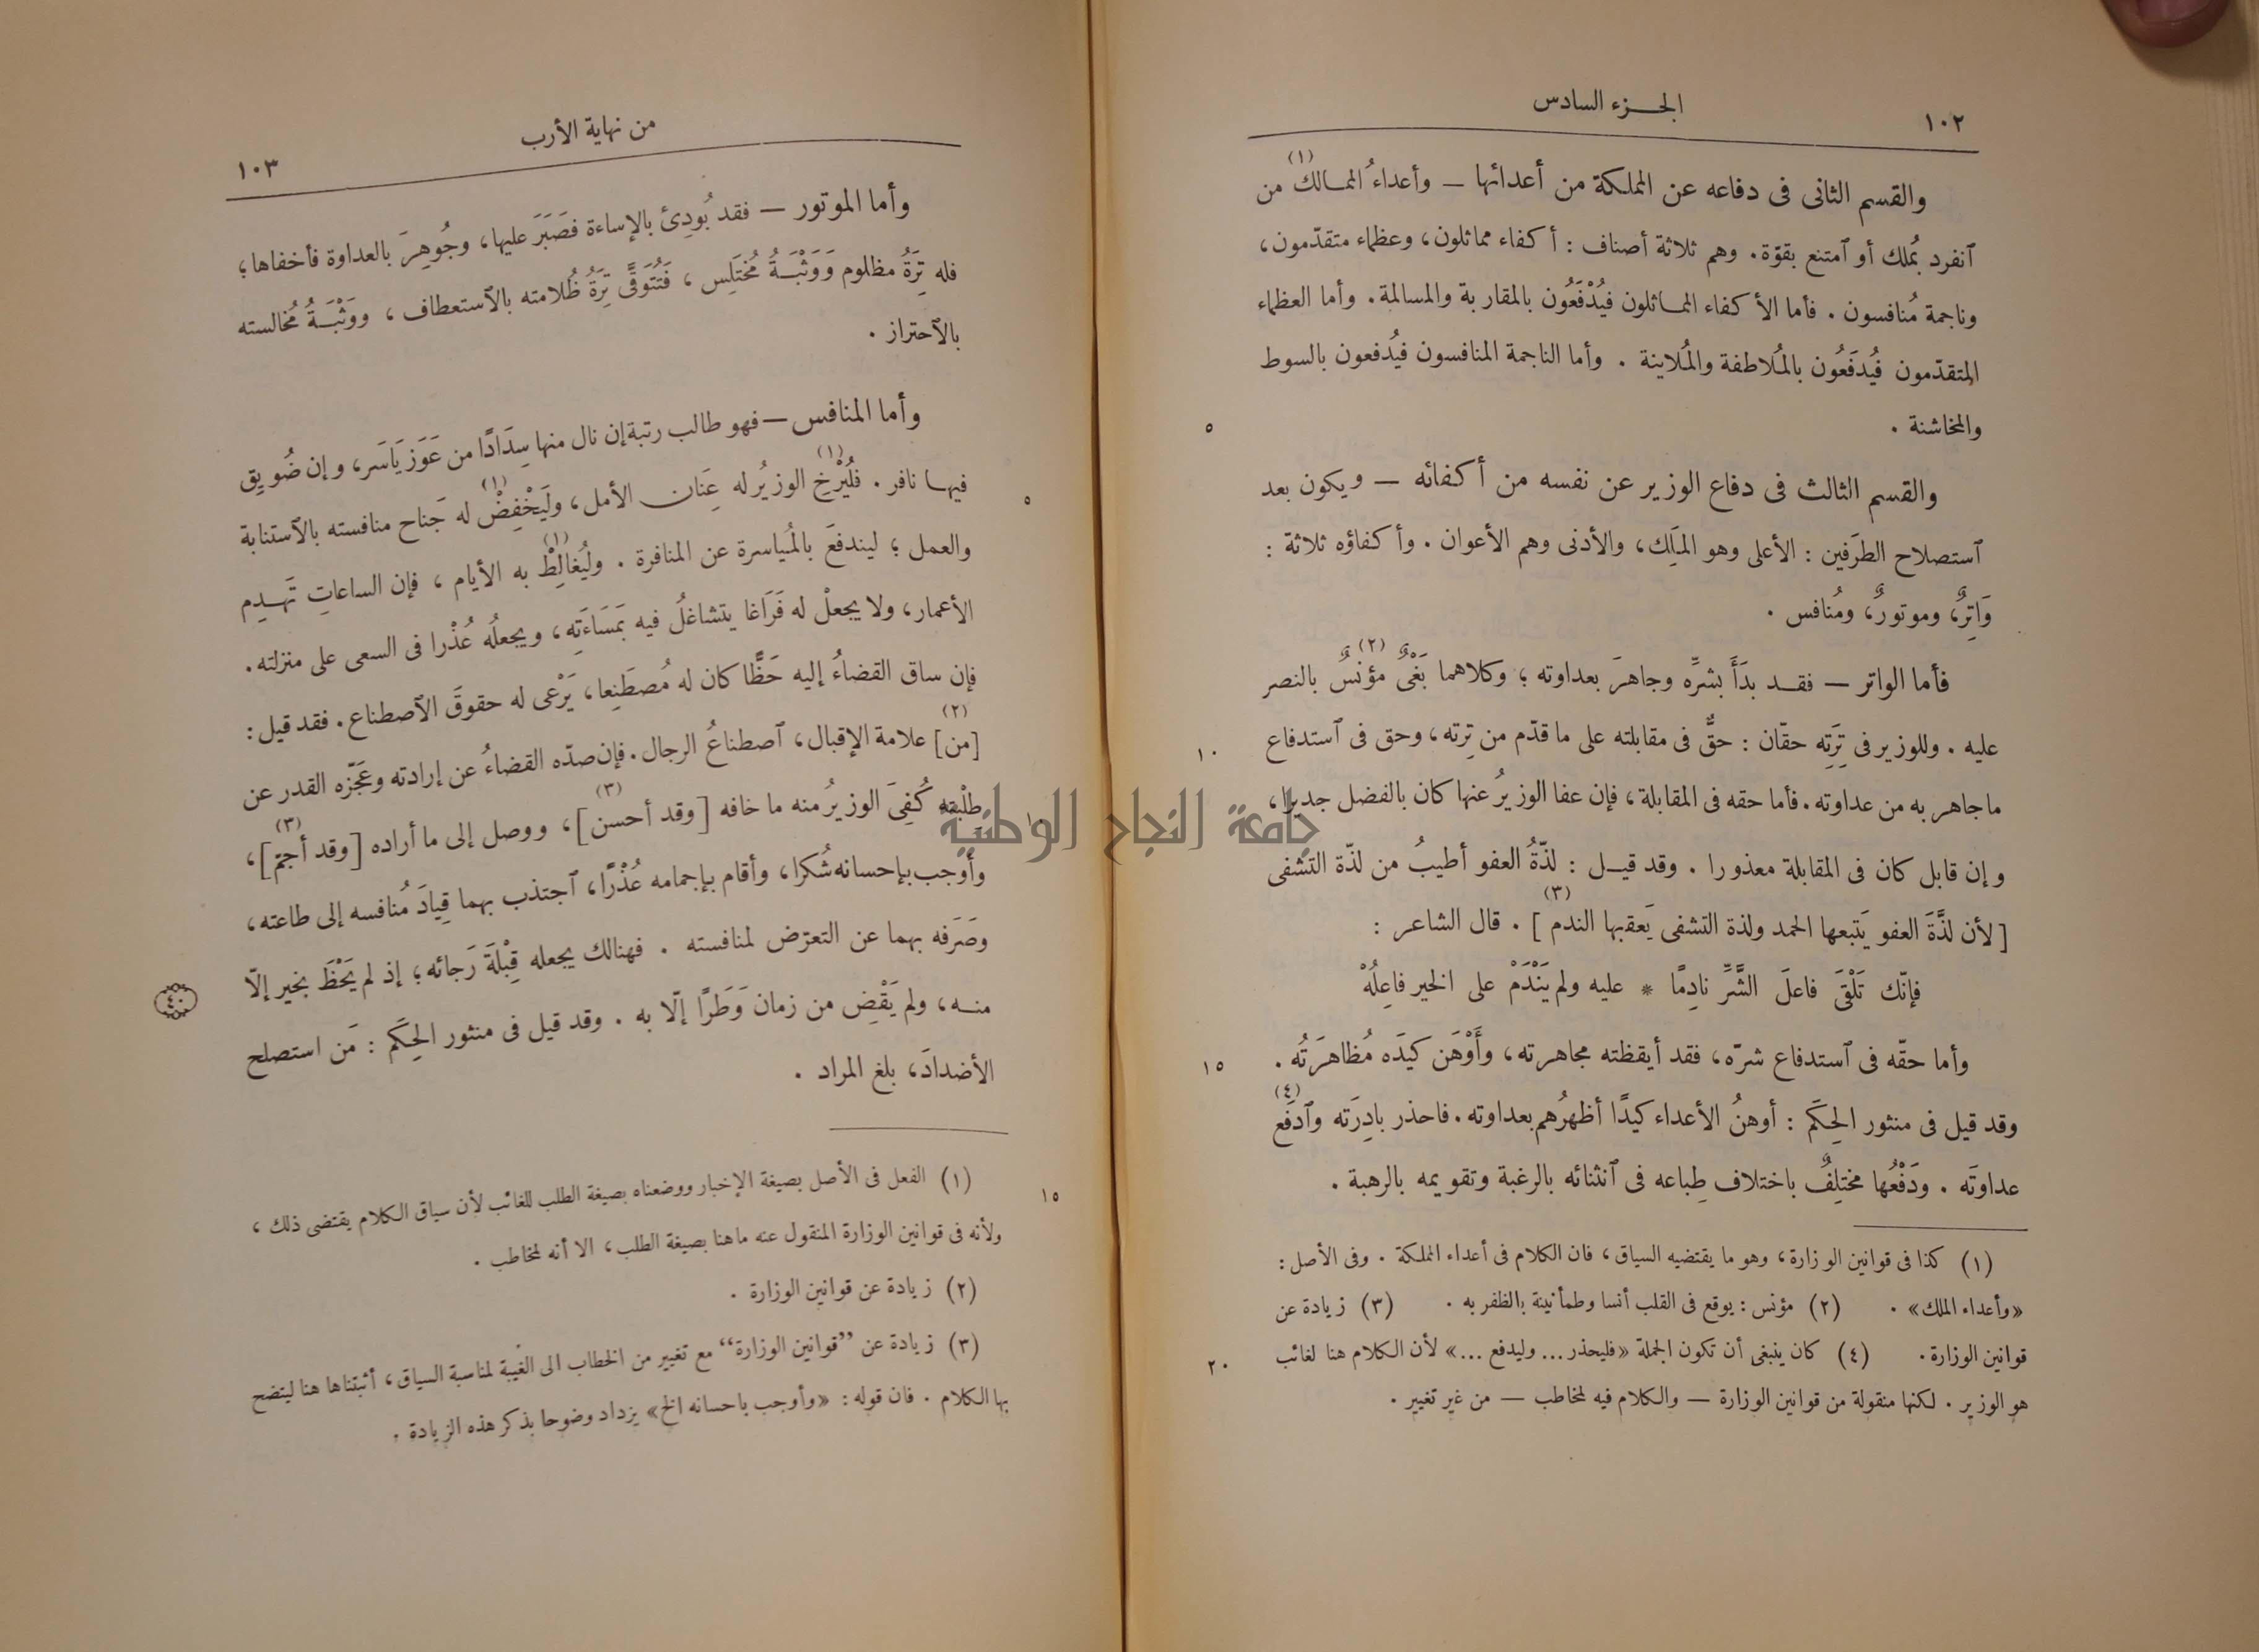 ١٠٢
الجـــزء السادس
والقسم الثانى فى دفاعه عن المملكة من أعدائها — وأعداءُ الممـالك(١) من
ٱنفرد بمُلك أو ٱمتنع بقوّة. وهم ثلاثة أصناف : أكفاء مماثلون، وعظماء متقدّمون،
وناجمة مُنافسون . فأما الأكفاء المماثلون فيُدْفَعُون بالمقاربة والمسالمة. وأما العظماء
المتقدّمون فيُدفَعُون بالمُلاطفة والمُلاينة . وأما الناجمة المنافسون فيُدفعون بالسوط
والمخاشنة . ٥
والقسم الثالث فى دفاع الوزير عن نفسه من أكفائه — ويكون بعد
ٱستصلاح الطرَفين : الأعلى وهو الملِك، والأدنى وهم الأعوان . وأكفاؤه ثلاثة :
وَاتِرٌ، وموتورٌ، ومُنافس .
فأما الواتر — فقـد بدَأَ بشرِّه وجاهرَ بعداوته ؛ وكلاهما بَغْىٌ مؤنسٌ(٢) بالنصر
عليه . وللوزير فى تِرَتِه حقّان : حقٌّ فى مقابلته على ما قدّم من تِرته، وحق فى ٱستدفاع ١٠
ما جاهر به من عداوته. فأما حقه فى المقابلة، فإن عفا الوزيرُ عنها كان بالفضل جديرا،
وإن قابل كان فى المقابلة معذورا . وقد قيـل : لذّةُ العفو أطيبُ من لذّة التشفى
[لأن لذَّةَ العفو يَتبعها الحمد ولذة التشفى يَعقبها الندم(٣)] . قال الشاعر :
فإنّك تَلْقَى فاعلَ الشَّرِّ نادِمًا * عليه ولم يَنْدَمْ على الخير فاعِلُهْ
وأما حقّه فى ٱستدفاع شرّه، فقد أيقظته مجاهرته، وأَوْهَن كيدَه مُظاهرَتُه . ١٥
وقد قيل فى منثور الحِكَم : أوهنُ الأعداء كيدًا أظهرُهم بعداوته. فاحذر بادِرَته وٱدفَع(٤)
عداوتَه . ودَفْعُها مختلِفٌ باختلاف طِباعه فى ٱنثنائه بالرغبة وتقويمه بالرهبة .
(١) كذا فى قوانين الوزارة، وهو ما يقتضيه السياق، فان الكلام فى أعداء المملكة . وفى الأصل :
«وأعداء الملك» . (٢) مؤنس : يوقع فى القلب أنسا وطمأنينة بالظفر به . (٣) زيادة عن
قوانين الوزارة. (٤) كان ينبغى أن تكون الجملة «فليحذر ... وليدفع ...» لأن الكلام هنا لغائب ٢٠
هو الوزير . لكنها منقولة من قوانين الوزارة — والكلام فيه لمخاطب — من غير تغيير .
من نهاية الأرب
١٠٣
وأما الموتور — فقد بُودِئ بالإساءة فصَبَرَ عليها، وجُوهِرَ بالعداوة فأخفاها ؛
فله تِرَةُ مظلوم وَوَثْبَـةُ مُختَلِس ، فَتُتَوقَّى تِرَةُ ظُلامته بالٱستعطاف ، ووَثْبَـةُ مُخالسته
بالٱحتراز .
وأما المنافس — فهو طالب رتبة إن نال منها سِدَادًا من عَوَز يَاسَر، وإن ضُويق
فيهـا نافر . فلْيُرْخِ(١) الوزيرُ له عِنَان الأمل، ولْيَخْفِضْ(١) له جَناح منافسته بالٱستنابة ٥
والعمل ؛ ليندفعَ بالمُياسرة عن المنافرة . وليُغالِطْ(١) به الأيام ، فإن الساعاتِ تَهـدِم
الأعمار، ولا يجعلْ له فَرَاغا يتشاغلُ فيه بمَسَاءَتِه، ويجعلُه عُذْرا فى السعى على منزلته .
فإن ساق القضاءُ إليه حَظًّا كان له مُصطَنِعا، يَرْعى له حقوقَ الٱصطناع. فقد قيل :
[من](٢) علامة الإقبال، ٱصطناعُ الرجال. فإن صدّه القضاءُ عن إرادته وعَجّزه القدر عن
طلْبته كُفِىَ الوزيرُ منه ما خافه [وقد أحسن](٣)، ووصل إلى ما أراده [وقد أجمّ](٣)،
وأوجب بإحسانه شُكرا، وأقام بإجمامه عُذْرًا، ٱجتذب بهما قِيادَ مُنافسه إلى طاعته،
وصَرَفه بهما عن التعرّض لمنافسته . فهنالك يجعله قِبْلَةَ رَجائه ؛ إذ لم يَحْظَ بخير إلّا
منـه، ولم يَقْضِ من زمان وَطَرًا إلّا به . وقد قيل فى منثور الحِكَم : مَن استصلح
الأضدادَ، بلغ المراد .
٤٠
(١) الفعل فى الأصل بصيغة الإخبار ووضعناه بصيغة الطلب للغائب لأن سياق الكلام يقتضى ذلك ، ١٥
ولأنه فى قوانين الوزارة المنقول عنه ماهنا بصيغة الطلب، الا أنه لمخاطب .
(٢) زيادة عن قوانين الوزارة .
(٣) زيادة عن ”قوانين الوزارة“ مع تغيير من الخطاب الى الغيبة لمناسبة السياق، أثبتناها هنا ليتضح
بها الكلام . فان قوله : «وأوجب باحسانه الخ» يزداد وضوحا بذكر هذه الزيادة .
جامعة النجاح الوطنية